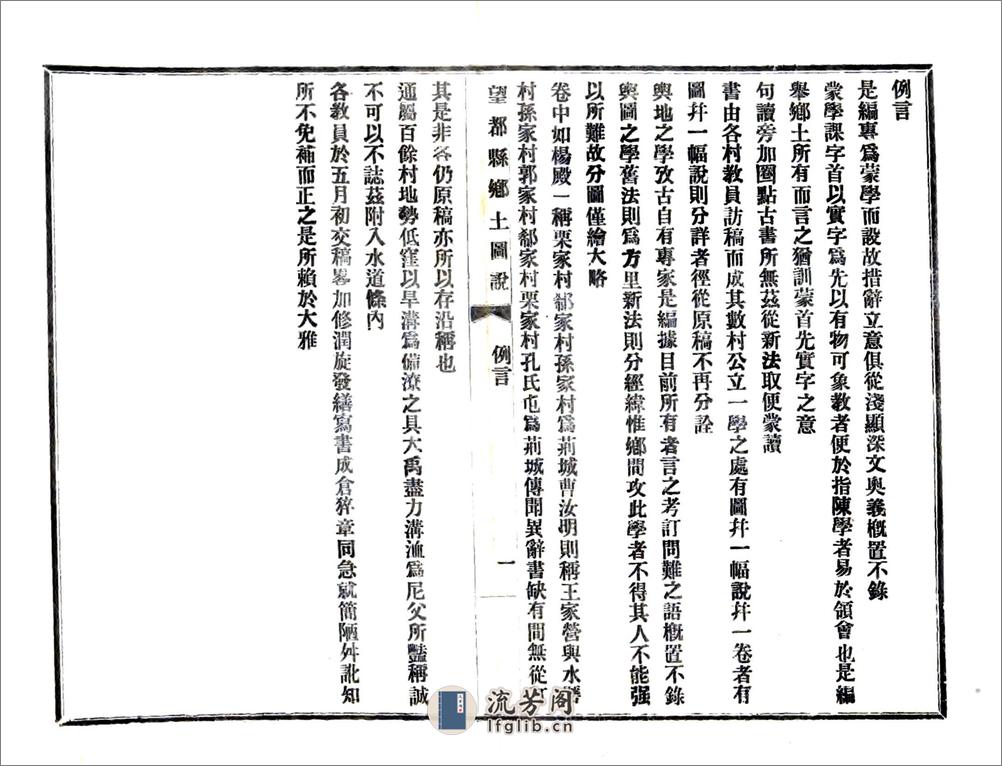 例言
是編專爲蒙學而設故措辭立意俱從淺顯深文奧義槪置不錄
蒙學課字首以實字爲先以有物可象敎者便於指陳學者易於領會也是編
舉鄉土所有而言之猶訓蒙首先實字之意
句讀旁加圈點古書所無茲從新法取便蒙讀
書由各村敎員訪稿而成其數村公立一學之處有圖幷一幅說幷一卷者有
圖幷一幅說則分詳者徑從原稿不再分詮
輿地之學攷古自有專家是編據目前所有者言之考訂問難之語槪置不錄
輿圖之學舊法則爲方里新法則分經緯惟鄉間攻此學者不得其人不能强
以所難故分圖僅繪大略
卷中如楊殿一稱栗家村郗家村孫家村爲荊城曹汝明則稱王家營與水
村孫家村郭家村郗家村栗家村孔氏屯爲荊城傳聞異辭書缺有間無從
望都縣鄉土圖說
例言
一
其是非各仍原稿亦所以存沿稱也
通屬百餘村地勢低窪以旱溝爲備潦之具大禹盡力溝洫爲尼父所豔稱誠
不可以不誌茲附入水道條內
各敎員於五月初交稿畧加修潤旋發繕寫書成倉猝章同急就簡陋舛訛知
所不免補而正之是所賴於大雅
流芳阁
lfglib.cn